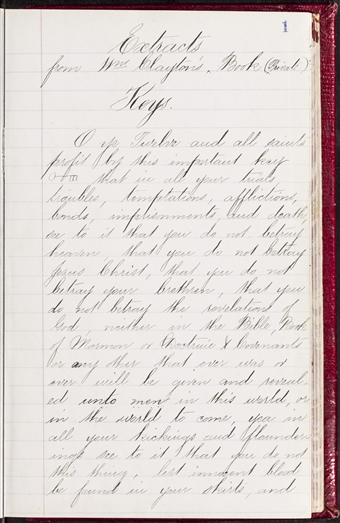 1
Extracts
from Wm Clayton's Book (Private)
Keys.
O ye Twelve and all saints
profit by this important key
that in all your trials
troubles, temptations, afflictions,
bonds, imprisonments, and death,
see to it that you do not betray
heaven, that you do not betray
Jesus Christ, that you do not
betray your brethren, that you
do not betray the revelations of
God, neither in the Bible, Book
of Mormon or Doctrine & Covenants
or any other that ever was or
ever will be given and reveal
ed unto men in this world, or
in the world to come, yea in
all your kickings and flounder
ings see to it that you do not
this thing, lest innocent blood
be found in your skirts, and